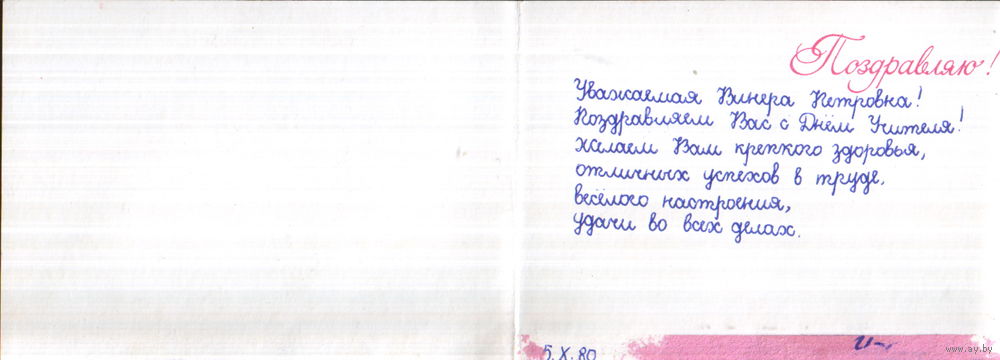 Поздравляю!
Уважаемая Винера Петровна!
Поздравляем Вас с Днём Учителя!
Желаем Вам крепкого здоровья,
отличных успехов в труде,
весёлого настроения,
удачи во всех делах.
5.X.80
www.ay.by